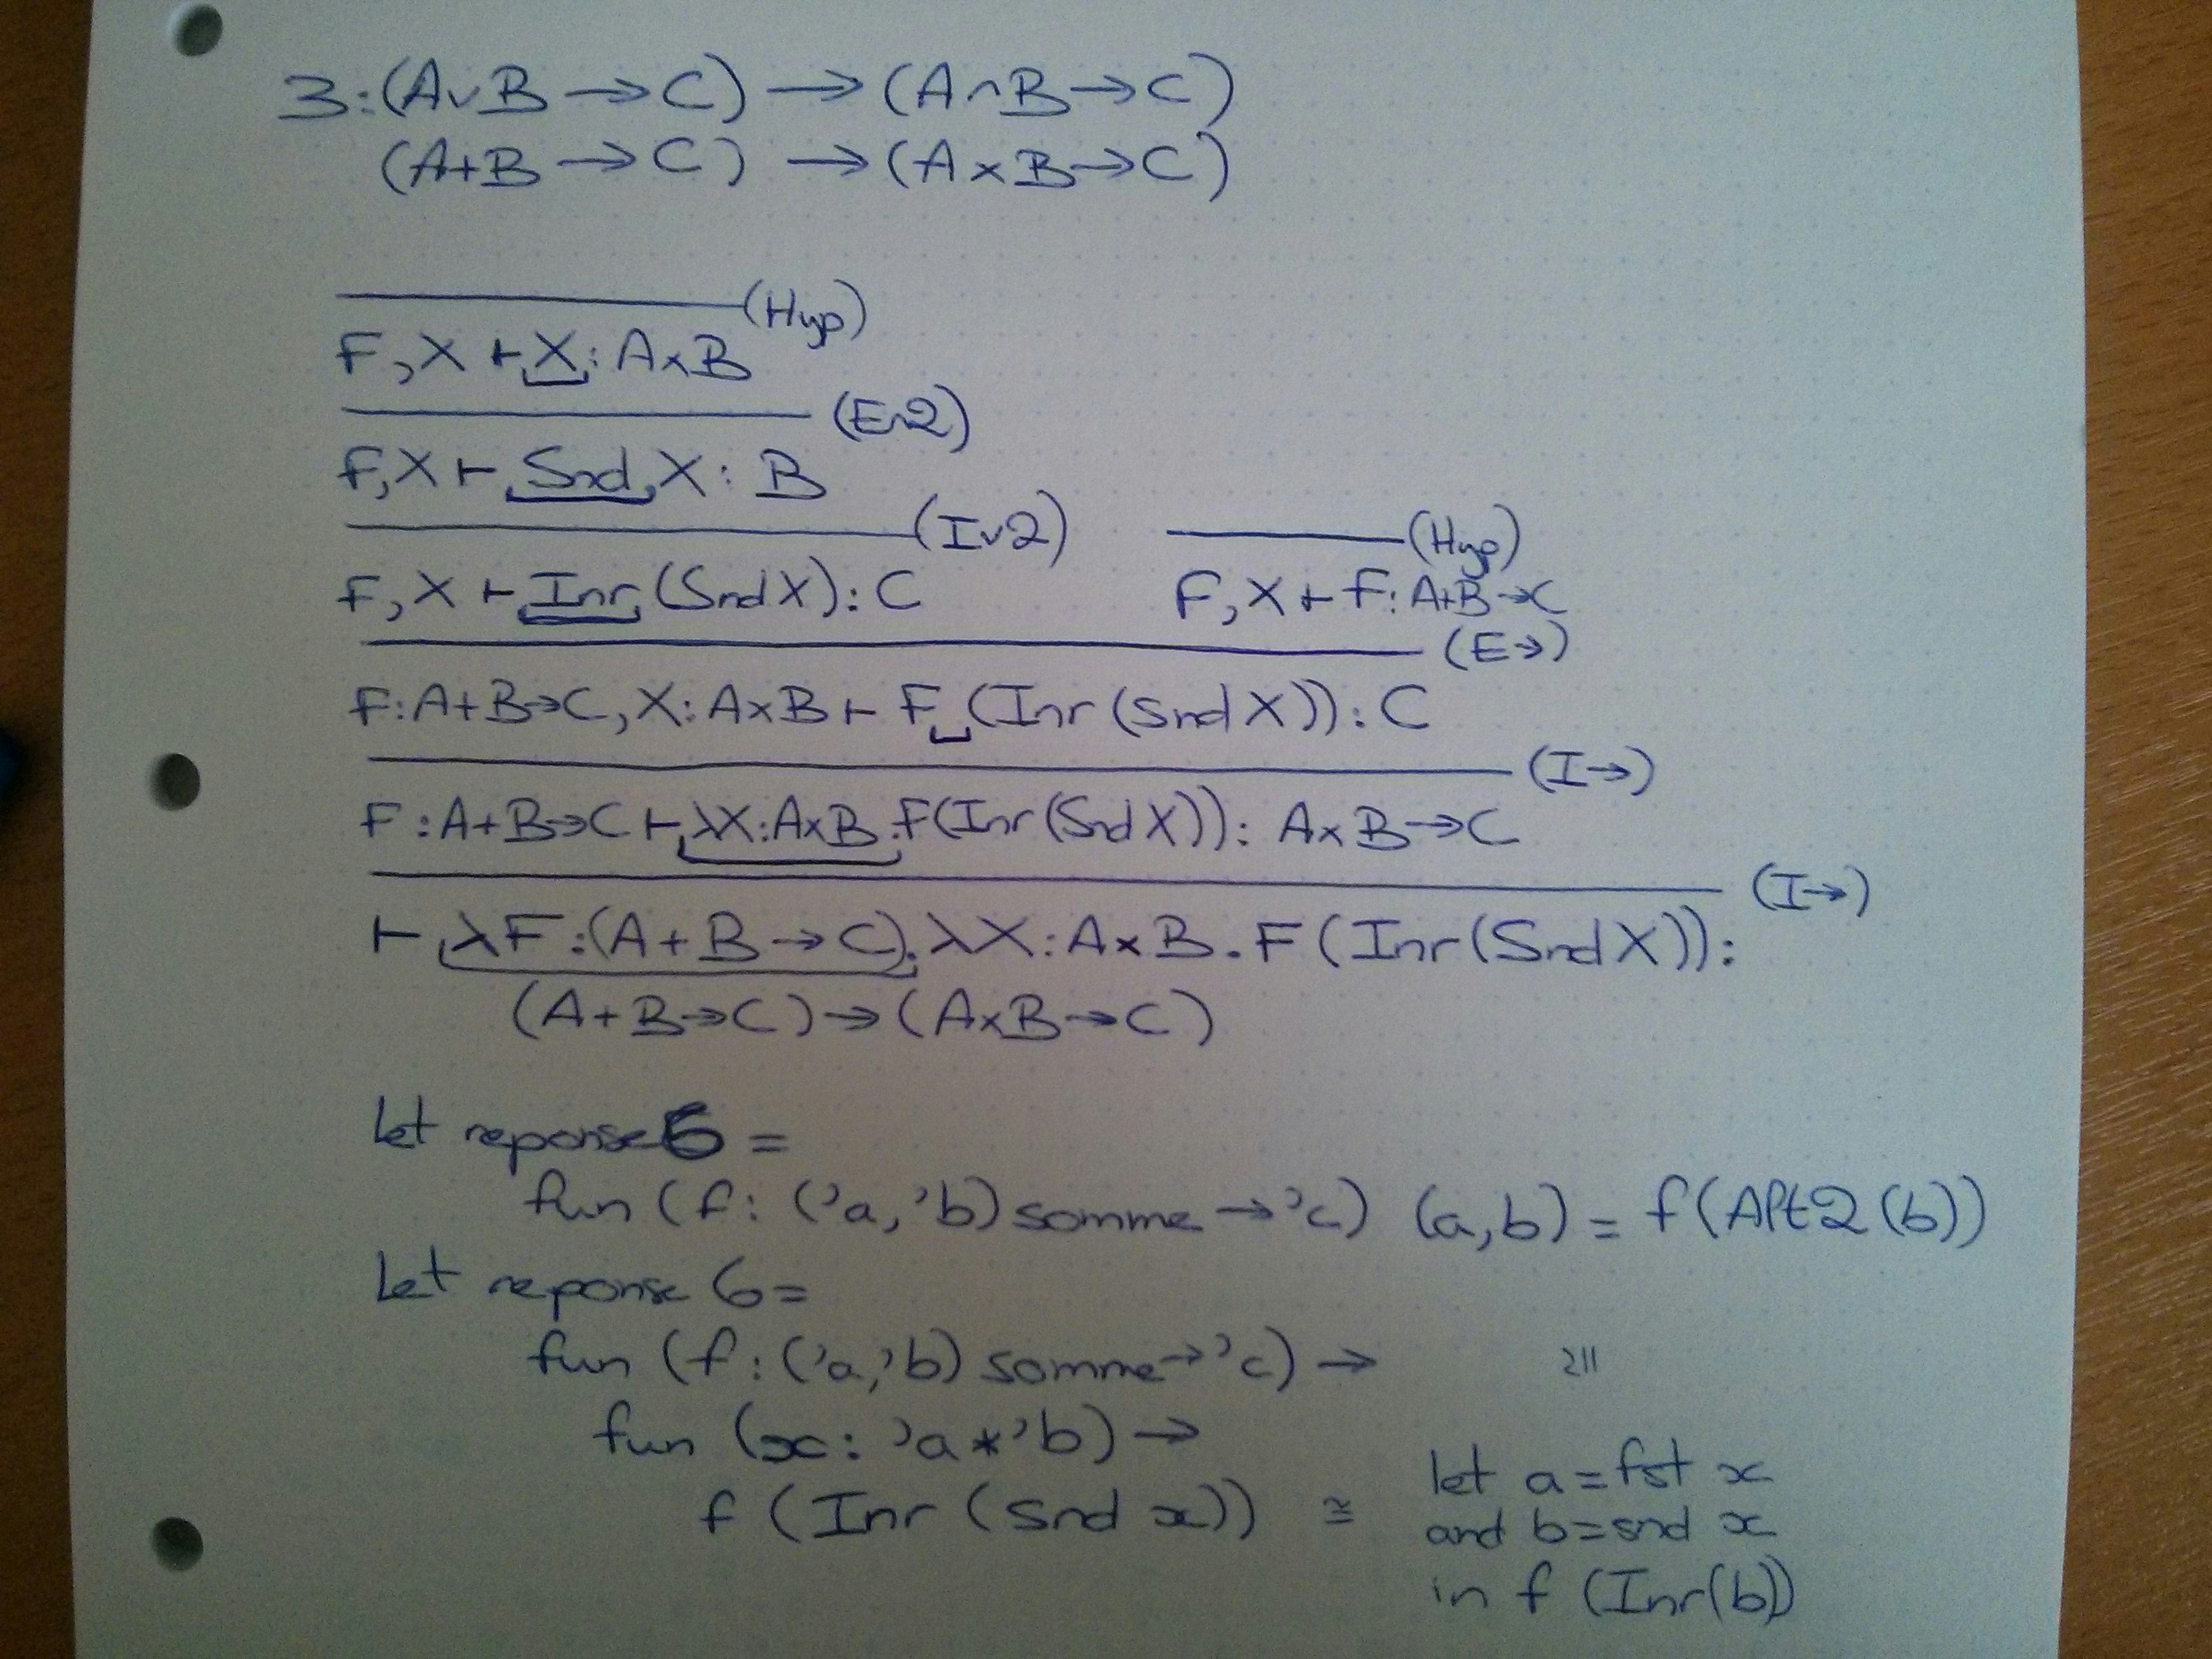 3:(A∨B → C) → (A∧B → C)
(A+B → C) → (A×B → C)
(Hyp)
F, X ⊢ X : A×B
(E∧2)
F, X ⊢ Snd X : B
(I∨2) (Hyp)
F, X ⊢ Inr (Snd X) : C F, X ⊢ F : A+B→C
(E→)
F : A+B→C, X : A×B ⊢ F (Inr (Snd X)) : C
(I→)
F : A+B→C ⊢ λX:A×B.F(Inr (Snd X)) : A×B→C
(I→)
⊢ λF:(A+B→C).λX:A×B.F(Inr(Snd X)):
(A+B→C)→(A×B→C)
let reponse6 =
fun (f: ('a,'b) somme → 'c) (a,b) = f(Alt2(b))
let reponse 6 =
fun (f : ('a,'b) somme → 'c) → ≅
fun (x : 'a * 'b) →
let a = fst x
f (Inr (snd x)) ≅ and b = snd x
in f (Inr(b))